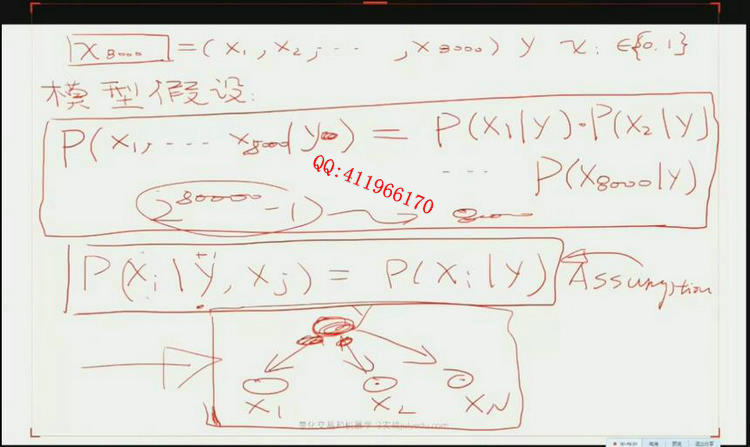 x8000 = (x1, x2, ..., x8000) y xi ∈{0.1}
模型假设:
P(x1, ... x8000|y) = P(x1|y)·P(x2|y)
... P(x8000|y)
QQ:411966170
P(xi|y, xj) = P(xi|y) Assumption
x1 x2 xN